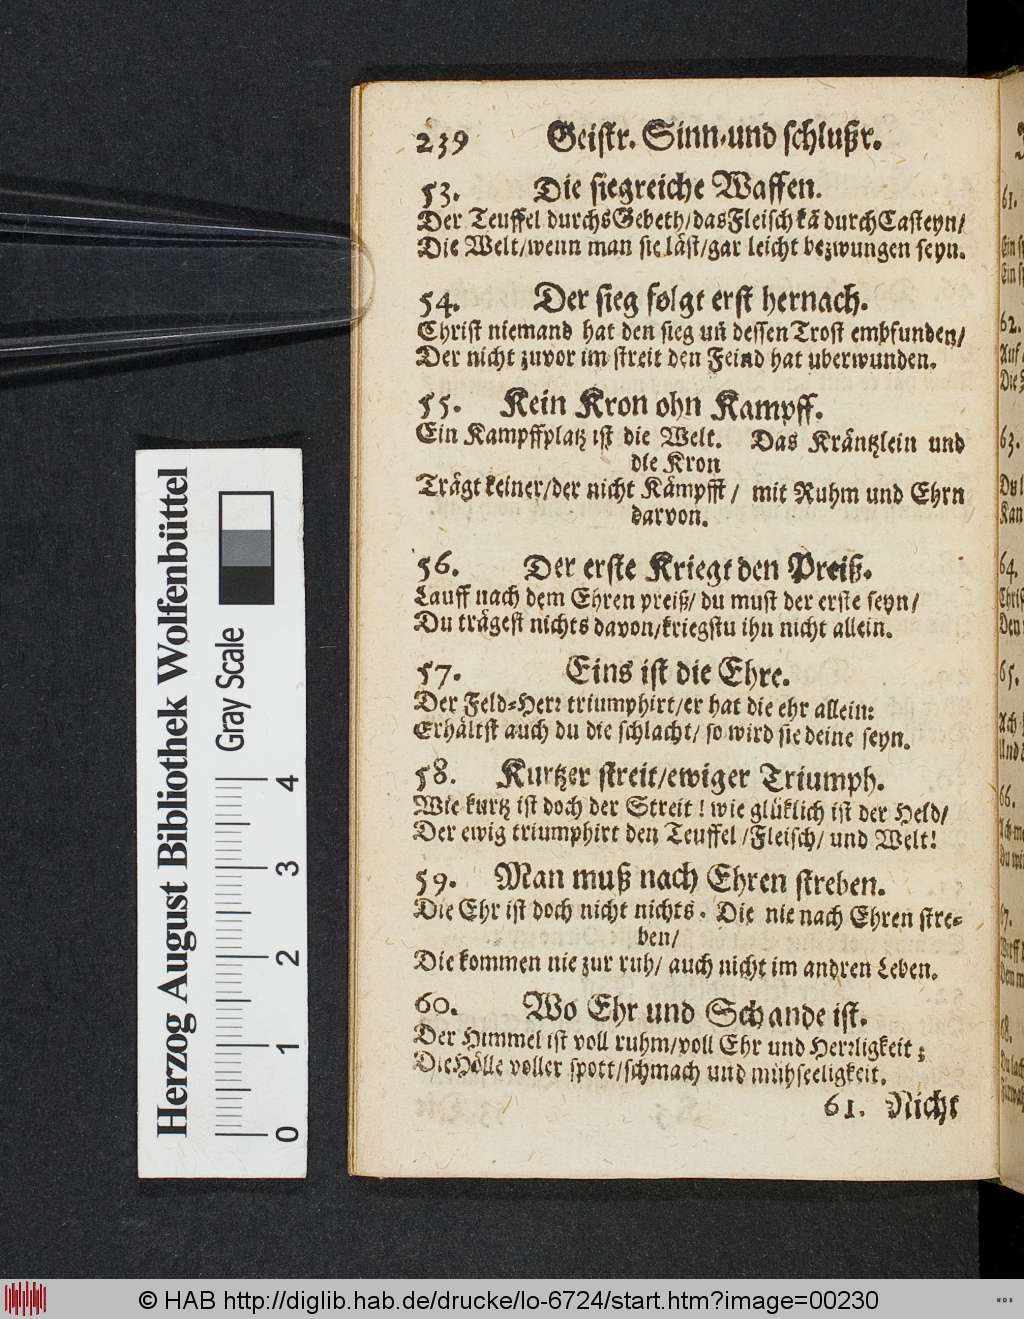 239 Geistr. Sinn-und schlußr.
53. Die siegreiche Waffen.
Der Teuffel durchs Gebeth/das Fleisch kā durch Casteyn/
Die Welt/wenn man sie läst/gar leicht bezwungen seyn.
54. Der sieg folgt erst hernach.
Christ niemand hat den sieg uñ dessen Trost emhfunden/
Der nicht zuvor im streit den Feind hat uberwunden.
55. Kein Kron ohn Kampff.
Ein Kampffplatz ist die Welt. Das Kräntzlein und
die Kron
Trägt keiner/der nicht Kämpfft / mit Ruhm und Ehrn
darvon.
56. Der erste Kriegt den Preiß.
Lauff nach dem Ehren preiß/ du must der erste seyn/
Du trägest nichts davon/kriegstu ihn nicht allein.
57. Eins ist die Ehre.
Der Feld=Herr triumphirt/er hat die ehr allein:
Erhältst auch du die schlacht/ so wird sie deine seyn.
58. Kurtzer streit/ewiger Triumph.
Wie kurtz ist doch der Streit ! wie glüklich ist der Held/
Der ewig triumphirt den Teuffel /Fleisch/ und Welt!
59. Man muß nach Ehren streben.
Die Ehr ist doch nicht nichts. Die nie nach Ehren stre=
ben/
Die kommen nie zur ruh/ auch nicht im andren Leben.
60. Wo Ehr und Schande ist.
Der Himmel ist voll ruhm/voll Ehr und Herrligkeit ;
Die Hölle voller spott/schmach und mühseeligkeit.
61. Nicht
61.
Ein
Ein
62.
Auf
Die
63.
Du
Kan
64.
Den
65.
Ach
Und
66.
Herzog August Bibliothek Wolfenbüttel
Gray Scale
0 1 2 3 4
© HAB http://diglib.hab.de/drucke/lo-6724/start.htm?image=00230